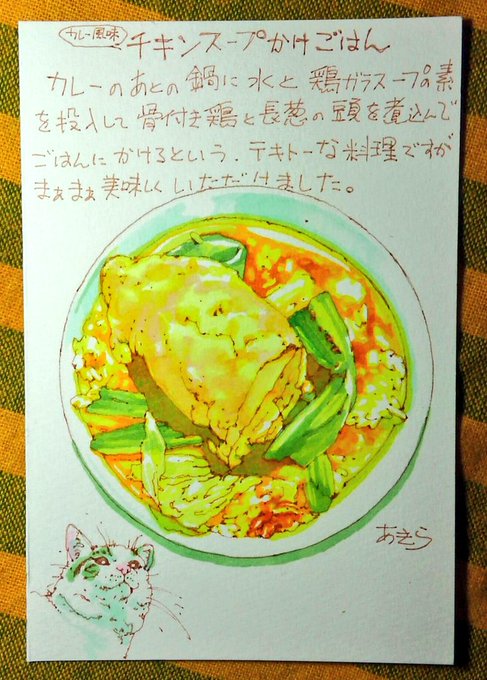 カレー風味
チキンスープかけごはん
カレーのあとの鍋に水と鶏ガラスープの素
を投入して骨付き鶏と長葱の頭を煮込んで
ごはんにかけるという、テキトーな料理ですが
まぁまぁ美味しくいただけました。
あきら